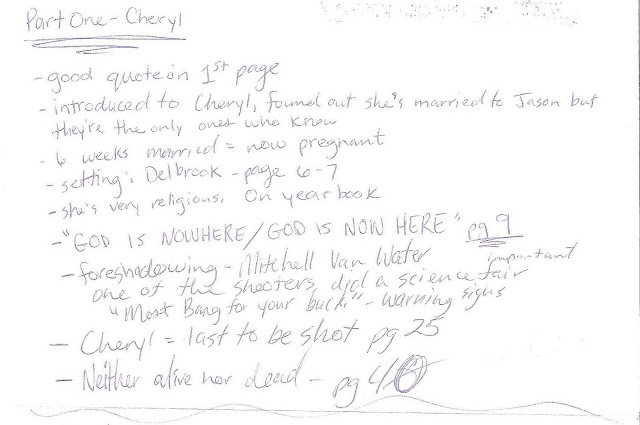 Part One - Cheryl
- good quote on 1st page
- introduced to Cheryl, found out she's married to Jason but
they're the only ones who know
- 6 weeks married = now pregnant
- setting: Delbrook - page 6-7
- she's very religious. On yearbook
- "GOD IS NOWHERE/GOD IS NOW HERE" pg 9
important
- foreshadowing - Mitchell Van Water
one of the shooters, did a science fair
"Most Bang for your buck." - warning signs
- Cheryl = last to be shot pg 25
- Neither alive nor dead - pg 4